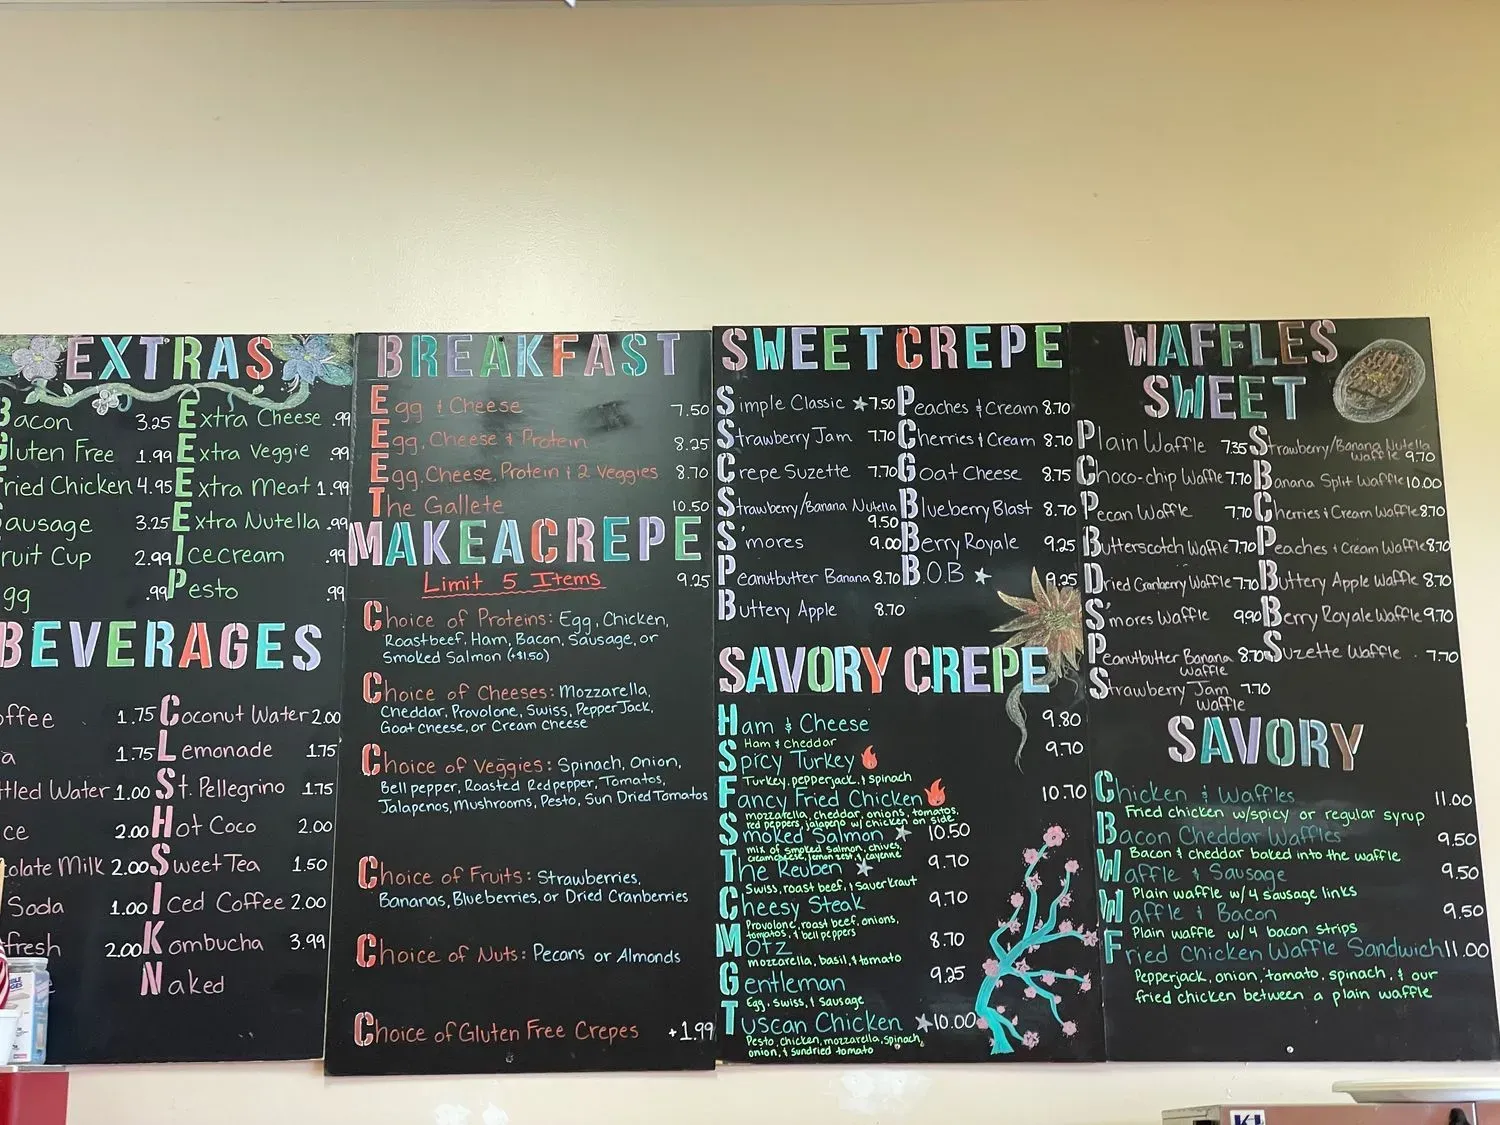 EXTRAS
Bacon 3.25
Gluten Free 1.99
Fried Chicken 4.95
Sausage 3.25
Fruit Cup 2.99
Egg .99
Extra Cheese .99
Extra Veggie .99
Extra Meat 1.99
Extra Nutella .99
Icecream .99
Pesto .99
BEVERAGES
offee 1.75
a 1.75
ttled Water 1.00
ce 2.00
olate Milk 2.00
Soda 1.00
fresh 2.00
Coconut Water 2.00
Lemonade 1.75
St. Pellegrino 1.75
Hot Coco 2.00
Sweet Tea 1.50
Iced Coffee 2.00
Kombucha 3.99
Naked
BREAKFAST
Egg & Cheese 7.50
Egg, Cheese & Protein 8.25
Egg, Cheese, Protein & 2 Veggies 8.70
The Gallete 10.50
MAKE A CREPE
Limit 5 Items 9.25
Choice of Proteins: Egg, Chicken,
Roastbeef, Ham, Bacon, Sausage, or
Smoked Salmon (+$1.50)
Choice of Cheeses: Mozzarella,
Cheddar, Provolone, Swiss, Pepper Jack,
Goat cheese, or Cream Cheese
Choice of Veggies: Spinach, Onion,
Bell pepper, Roasted Red pepper, Tomatoes,
Jalapenos, mushrooms, Pesto, Sun Dried Tomatos
Choice of Fruits: Strawberries,
Bananas, Blueberries, or Dried Cranberries
Choice of Nuts: Pecans or Almonds
Choice of Gluten Free Crepes +1.99
SWEET CREPE
Simple Classic 7.50
Strawberry Jam 7.70
Crepe Suzette 7.70
Strawberry/Banana Nutella
9.50
S'mores 9.00
Peanutbutter Banana 8.70
Buttery Apple 8.70
Peaches & Cream 8.70
Cherries & Cream 8.70
Goat Cheese 8.75
Blueberry Blast 8.70
Berry Royale 9.25
B.O.B 9.25
SAVORY CREPE
Ham & Cheese 9.80
Ham & Cheddar
Spicy Turkey 9.70
Turkey, pepperjack, & spinach
Fancy Fried Chicken 10.70
mozzarella, cheddar, onions, tomatos,
red peppers, jalapeno w/ chicken on side
Smoked Salmon 10.50
mix of smoked salmon, chives,
creamcheese, lemon zest, & cayenne
The Reuben 9.70
Swiss, roast beef, & sauerkraut
Cheesy Steak 9.70
Provolone, roast beef, onions,
tomatos, & bell peppers
Motz 8.70
mozzarella, basil, & tomato
Gentleman 9.25
Egg, swiss, & sausage
Tuscan Chicken 10.00
Pesto, chicken, mozzarella, spinach,
onion, & sundried tomato
WAFFLES
SWEET
Plain Waffle 7.35
Choco-chip Waffle 7.70
Pecan Waffle 7.70
Butterscotch Waffle 7.70
Dried Cranberry Waffle 7.70
S'mores Waffle 9.90
Peanutbutter Banana 8.70
Waffle
Strawberry Jam 7.70
Waffle
Strawberry/Banana Nutella
Waffle 9.70
Banana Split Waffle 10.00
Cherries & Cream Waffle 8.70
Peaches & Cream Waffle 8.70
Buttery Apple Waffle 8.70
Berry Royale Waffle 9.70
Suzette Waffle . 7.70
SAVORY
Chicken & Waffles 11.00
Fried chicken w/spicy or regular syrup
Bacon Cheddar Waffles 9.50
Bacon & cheddar baked into the waffle
Waffle & Sausage 9.50
Plain waffle w/4 sausage links
Waffle & Bacon 9.50
Plain waffle w/ 4 bacon strips
Fried Chicken Waffle Sandwich 11.00
Pepperjack, onion, tomato, spinach, & our
fried chicken between a plain waffle